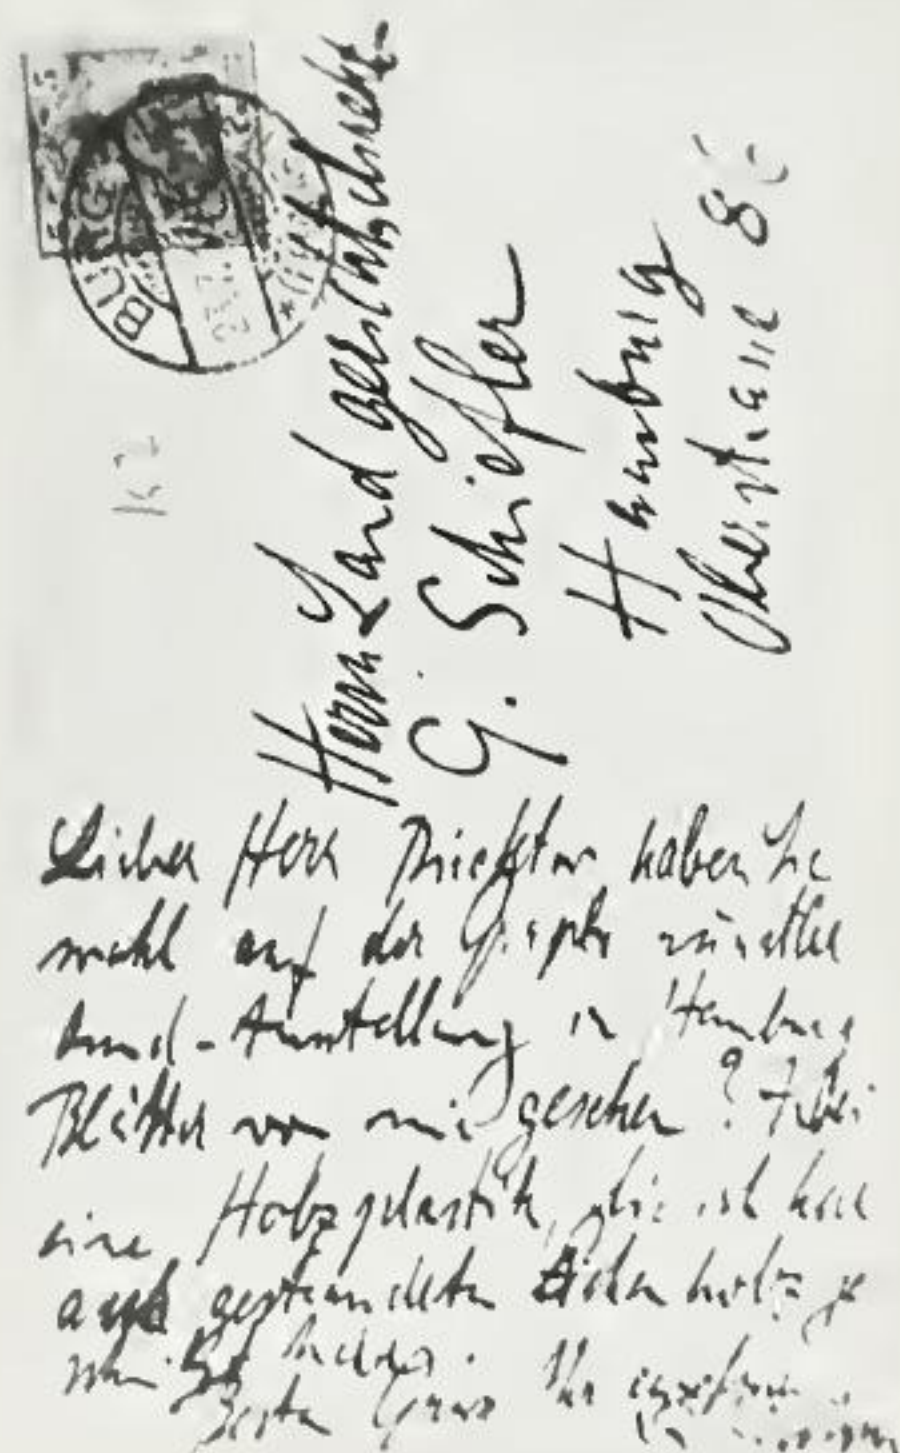 BURG
K 2
Herrn Landgerichtsdirekt.
G. Schiefler
Hamburg
Oberstrasse 86
Lieber Herr Direktor haben Sie
wohl auf der Graph
bund-Ausstellung in Hamburg
Blätter von mir gesehen? Anbei
eine Holzplastik, die ich hier
aus gestrandeten Eichenholz ge
schnitzt habe.
Besten Gruss Ihr ergebener